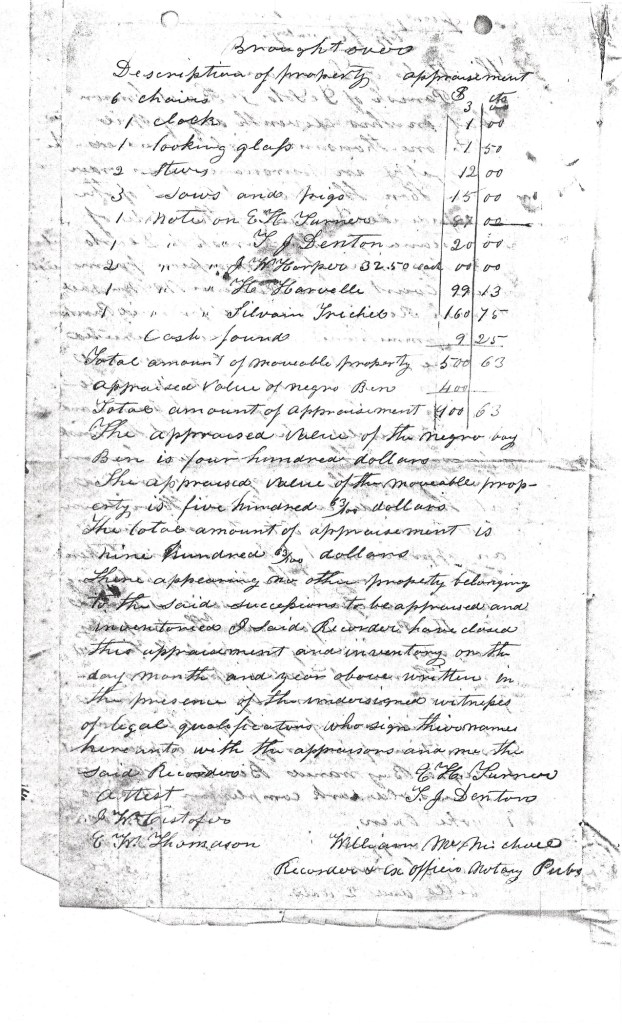 Brought over
Description of property appraisement
$ cts
6 chairs 3 00
1 clock 1 00
1 looking glass 1 50
2 12 00
3 Sows and pigs 15 00
1 note on E. H. Turner 00
1 " " T J Denton 20 00
2 " " J W Harper 32.50 each 00 00
1 " " H. Harvelle 99 13
1 " " Silvain Trichel 160 75
Cash found 9 25
Total amount of moveable property 500 63
appraised value of negro Ben 400
Total amount of appraisement 900 63
The appraised value of the negro boy
Ben is four hundred dollars
The appraised value of the moveable prop-
erty is five hundred 63/100 dollars
The total amount of appraisement is
nine hundred 63/100 dollars
There appearing no other property belonging
to the said successions to be appraised and
inventoried I said Recorder have closed
this appraisement and inventory on the
day month and year above written in
the presence of the undersigned witnesses
of legal qualifications who sign their names
hereunto with the appraisors and me the
Said Recorder E. H. Turner
Attest T. J. Denton
J. W.
E W Thomason William
Recorder & Ex officio Notary Pub